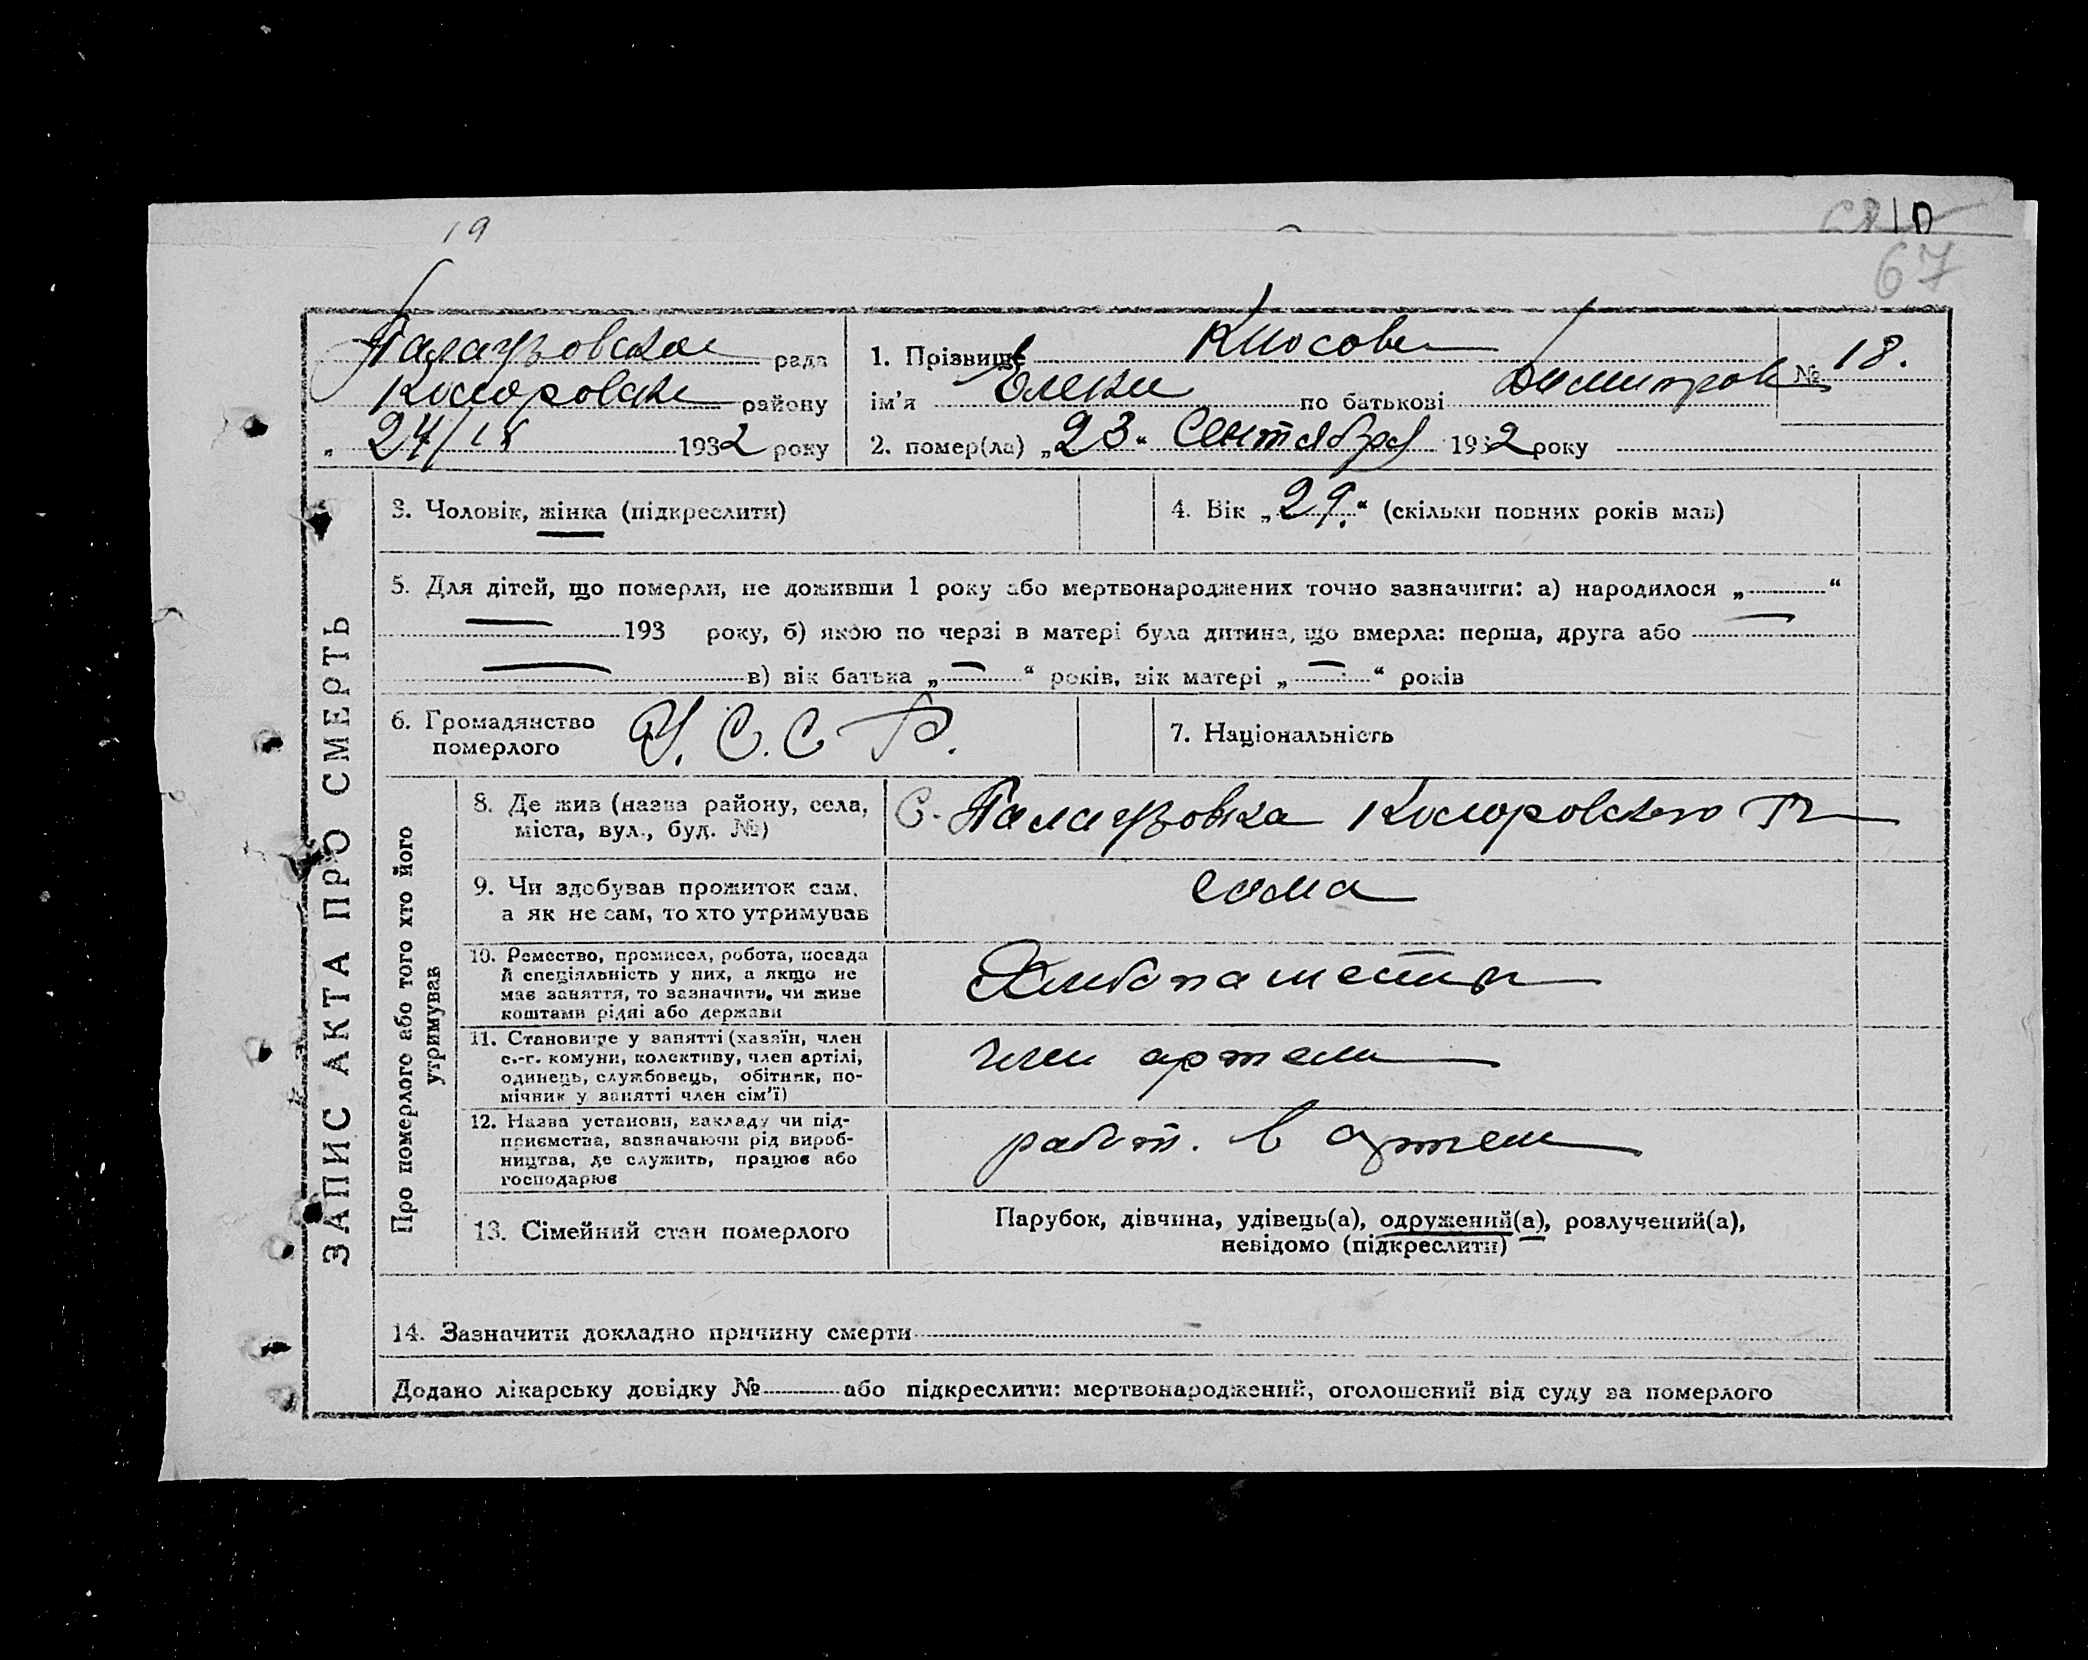 19
67
Палаузовская рада
Коларовск району
„ 24/IX 1932 року
1. Прізвище Киосова № 18.
ім'я Елена по батькові Димитров
2. помер(ла) „23“ Сентября 1932 року
ЗАПИС АКТА ПРО СМЕРТЬ
3. Чоловік, жінка (підкреслити)
4. Вік „29.“ (скільки повних років мав)
5. Для дітей, що померли, не доживши 1 року або мертвонароджених точно зазначити: а) народилося „—“
— 193 року, б) якою по черзі в матері була дитина, що вмерла: перша, друга або —
— в) вік батька „—“ років, вік матері „—“ років
6. Громадянство
померлого У. С. С. Р.
7. Національність
Про померлого або того хто його
утримував
8. Де жив (назва району, села,
міста, вул., буд. №)
С. Палаузовка Коларовского
9. Чи здобував прожиток сам,
а як не сам, то хто утримував
сама
10. Ремество, промисел, робота, посада
й спеціяльність у них, а якщо не
має заняття, то зазначити, чи живе
коштами рідні або держави
Хлебопашеств
11. Становище у занятті (хазяїн, член
с.-г. комуни, колективу, член артілі,
одинець, службовець, обітник, по-
мічник у занятті член сім'ї)
член артели
12. Назва установи, закладу чи під-
приємства, зазначаючи рід вироб-
ництва, де служить, працює або
господарює
работ. в артели
13. Сімейний стан померлого
Парубок, дівчина, удівець(а), одружений(а), розлучений(а),
невідомо (підкреслити)
14. Зазначити докладно причину смерти
Додано лікарську довідку № або підкреслити: мертвонароджений, оголошений від суду за померлого